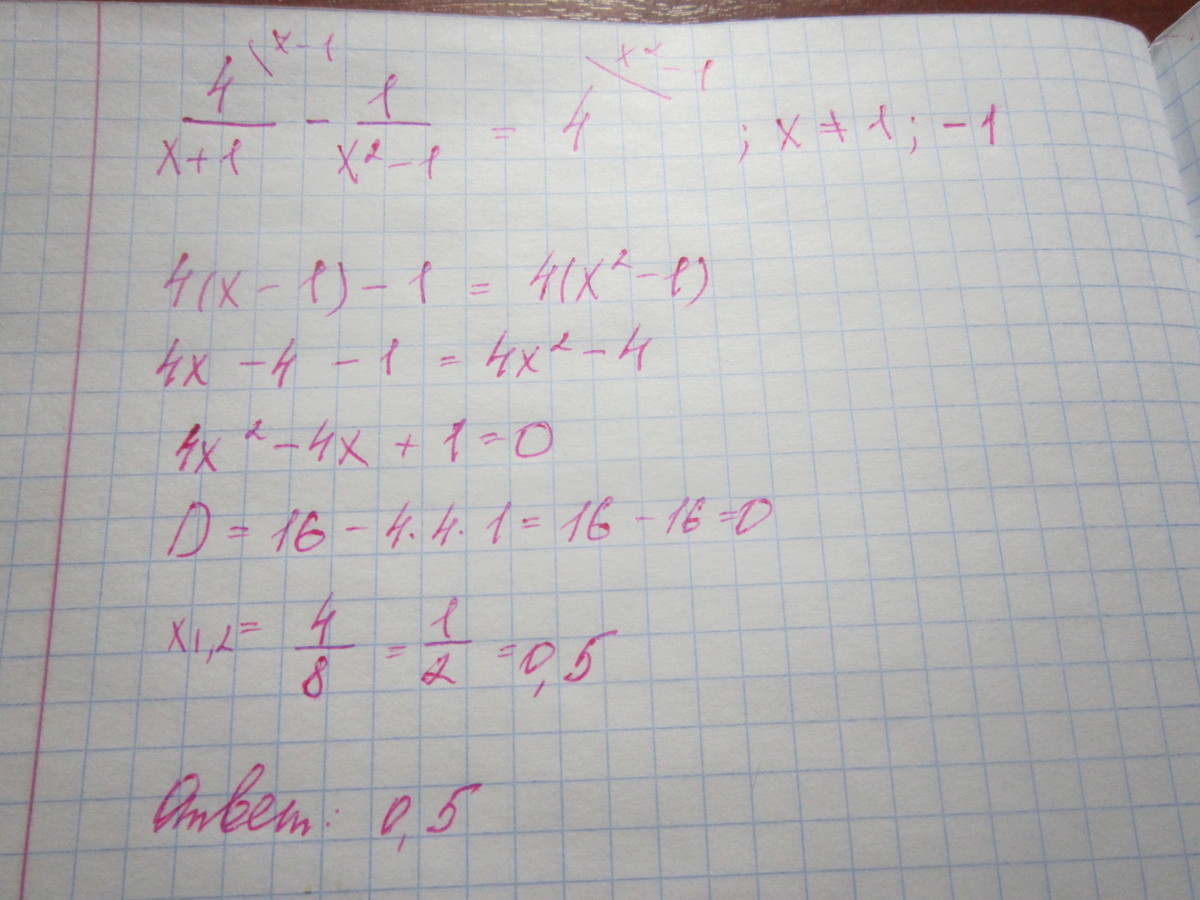 4 \x-1 / x+1 - 1 / x²-1 = 4 \x²-1 ; x ≠ 1; -1
4(x - 1) - 1 = 4(x² - 1)
4x - 4 - 1 = 4x² - 4
4x² - 4x + 1 = 0
D = 16 - 4·4·1 = 16 - 16 = 0
x1,2 = 4/8 = 1/2 = 0,5
Ответ: 0,5